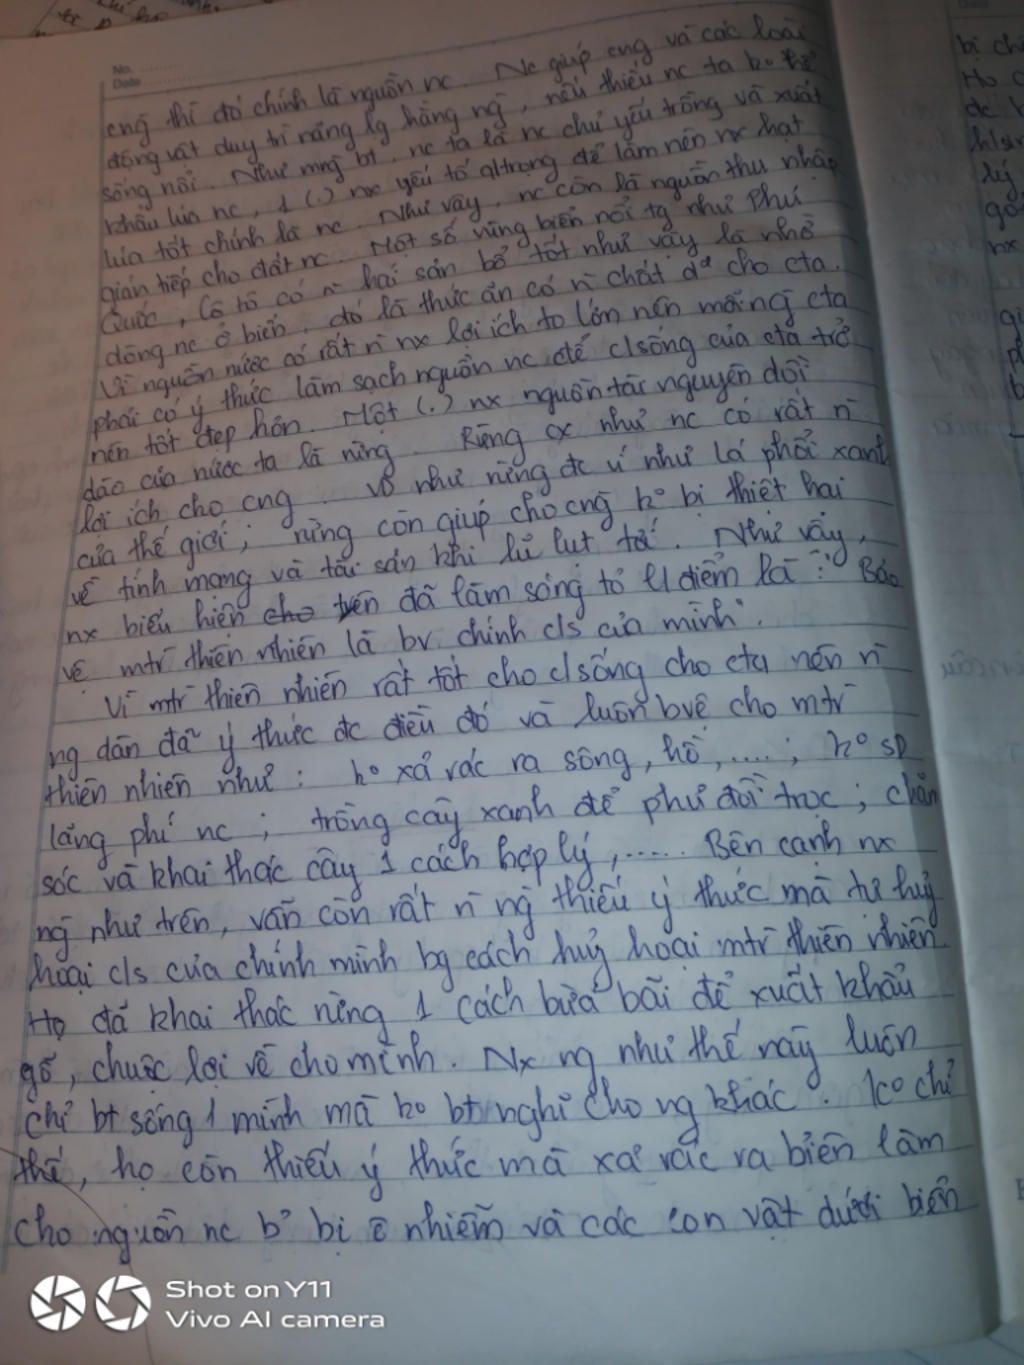 No.
Date
cng thì đó chính là nguồn nc. Nc giúp cng và các loài
động vật duy trì năng lg hằng ng, nếu thiếu nc ta ko thể
sống nổi. Như mng bt, nc ta là nc chủ yếu trồng và xuất
khẩu lúa nc, 1 (.) nx yếu tố qtrọng để làm nên nx hạt
lúa tốt chính là nc. Như vậy, nc còn là nguồn thu nhập
gián tiếp cho đất nc. Một số vùng biển nổi tg như Phú
Quốc, Cô tô có n hải sản bổ tốt như vậy là nhờ
dòng nc ở biển, đó là thức ăn có n chất d² cho cta.
Vì nguồn nước có rất n nx lợi ích to lớn nên mỗi ng cta
phải có ý thức làm sạch nguồn nc để c/sống của cta trở
nên tốt đẹp hơn. Một (.) nx nguồn tài nguyên dồi
dào của nước ta là rừng. Rừng cx như nc có rất n
lợi ích cho cng. Vd như rừng đc ví như lá phổi xanh
của thế giới; rừng còn giúp cho cng ko bị thiệt hại
về tính mạng và tài sản khi lũ lụt tới. Như vậy,
nx biểu hiện cho trên đã làm sáng tỏ q/điểm là: "Bảo
vệ mtr thiên nhiên là bv chính c/s của mình".
Vì mtr thiên nhiên rất tốt cho c/sống cho cta nên n
ng dân đã ý thức đc điều đó và luôn bvệ cho mtr
thiên nhiên như: ko xả rác ra sông, hồ,....; ko sp
lãng phí nc; trồng cây xanh để phủ đồi trọc; chăm
sóc và khai thác cây 1 cách hợp lý,..... Bên cạnh nx
ng như trên, vẫn còn rất n ng thiếu ý thức mà tự huỷ
hoại c/s của chính mình bg cách huỷ hoại mtr thiên nhiên.
Họ đã khai thác rừng 1 cách bừa bãi để xuất khẩu
gỗ, chuộc lợi về cho mình. Nx ng như thế này luôn
chỉ bt sống 1 mình mà ko bt nghĩ cho ng khác. Ko chỉ
thế, họ còn thiếu ý thức mà xả rác ra biển làm
cho nguồn nc bị ô nhiễm và các con vật dưới biển
Shot on Y11
Vivo AI camera